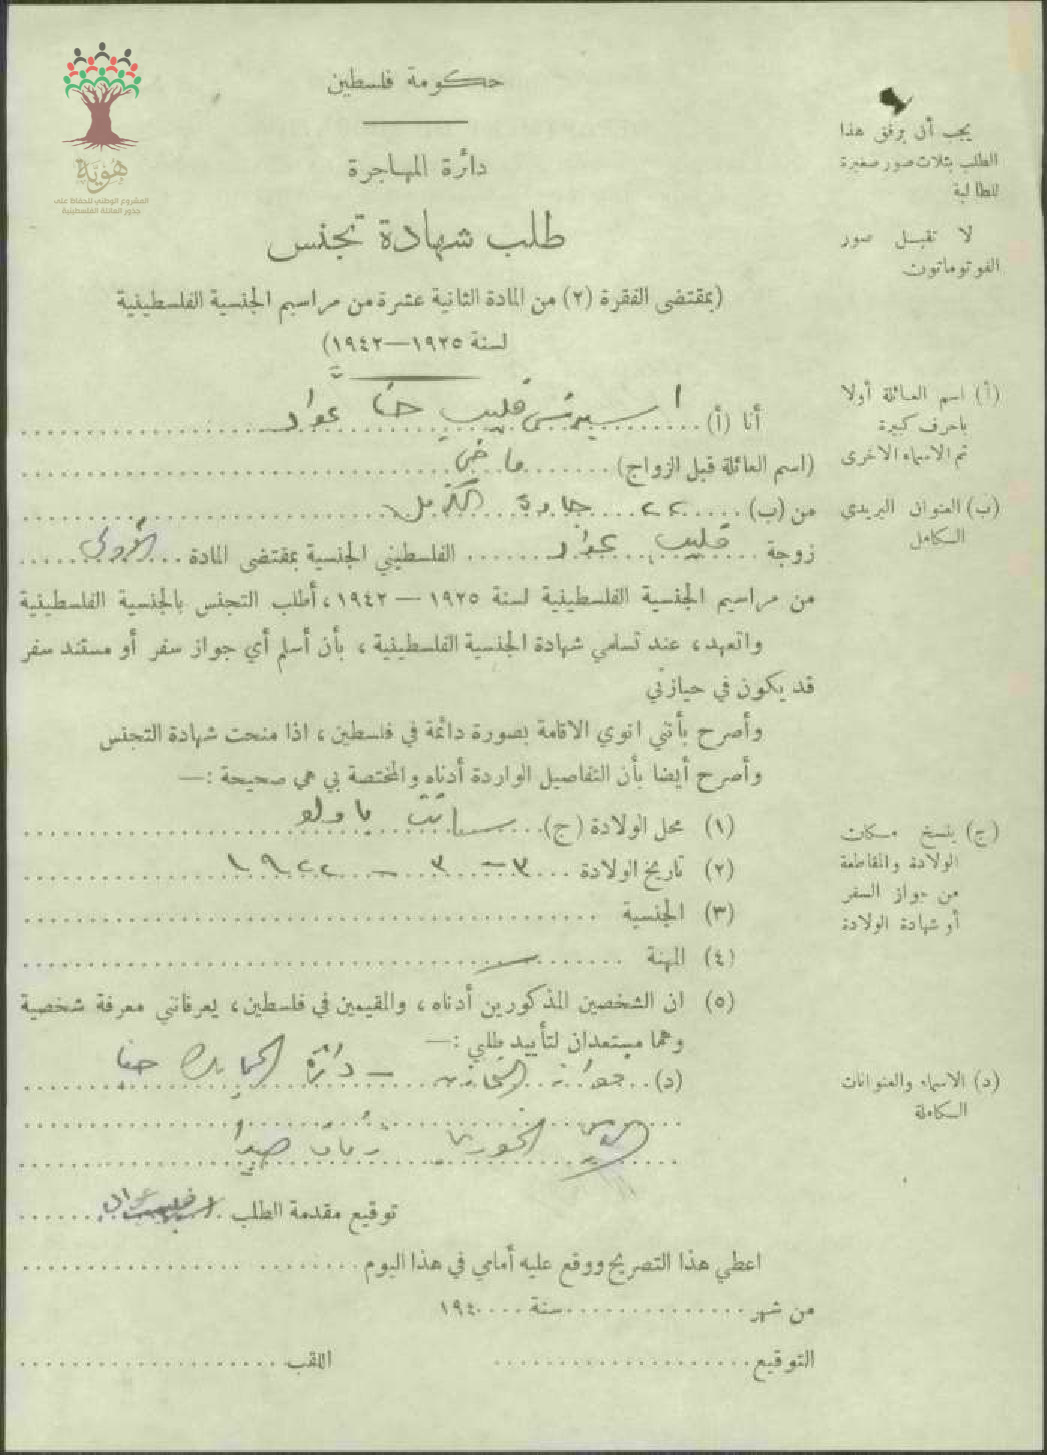 هويّة
المشروع الوطني للحفاظ على
جذور العائلة الفلسطينية
حكومة فلسطين
دائرة المهاجرة
طلب شهادة تجنس
(بمقتضى الفقرة (٢) من المادة الثانية عشرة من مراسيم الجنسية الفلسطينية
لسنة ١٩٢٥—١٩٤٢)
يجب أن يرفق هذا
الطلب بثلاث صور صغيرة
للطالبة
لا تقبل صور
الفوتوماتون
أنا (أ) فليب حنا عواد
(أ) اسم العائلة أولا
باحرف كبيرة
ثم الاسماء الاخرى
(اسم العائلة قبل الزواج)
من (ب) ٢٢ جادة الكرمل
(ب) العنوان البريدي
الكامل
زوجة فليب عواد الفلسطيني الجنسية بمقتضى المادة الأولى
من مراسيم الجنسية الفلسطينية لسنة ١٩٢٥ — ١٩٤٢، أطلب التجنس بالجنسية الفلسطينية
واتعهد، عند تسلمي شهادة الجنسية الفلسطينية، بأن أسلم أي جواز سفر أو مستند سفر
قد يكون في حيازتي
وأصرح بأنني انوي الاقامة بصورة دائمة في فلسطين، اذا منحت شهادة التجنس
وأصرح أيضا بأن التفاصيل الواردة أدناه والمختصة بي هي صحيحة :—
(١) محل الولادة (ج) سانت باولو
(ج) ينسخ مكان
الولادة والمقاطعة
من جواز السفر
أو شهادة الولادة
(٢) تاريخ الولادة ٣ - ٣ - ١٩٢٢
(٣) الجنسية
(٤) المهنة —
(٥) ان الشخصين المذكورين أدناه، والمقيمين في فلسطين، يعرفانني معرفة شخصية
وهما مستعدان لتأييد طلبي :—
(د) الخازن — دائرة حيفا
(د) الاسماء والعنوانات
الكاملة
الخوري
توقيع مقدمة الطلب
اعطي هذا التصريح ووقع عليه أمامي في هذا اليوم
من شهر سنة ١٩٤٠
التوقيع اللقب